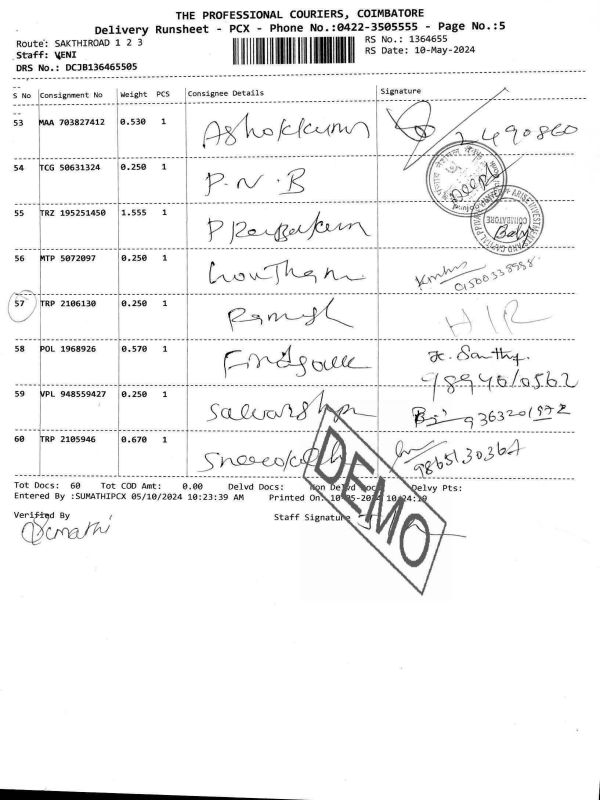 THE PROFESSIONAL COURIERS, COIMBATORE
Delivery Runsheet - PCX - Phone No.:0422-3505555 - Page No.:5
Route: SAKTHIROAD 1 2 3
RS No.: 1364655
Staff: VENI
RS Date: 10-May-2024
DRS No.: DCJB136465505
S No Consignment No Weight PCS Consignee Details Signature
53 MAA 703827412 0.530 1 Ashokkumar 2490860
54 TCG 50631324 0.250 1 P.N.B Deepk
55 TRZ 195251450 1.555 1 Baby
COIMBATORE
56 MTP 5072097 0.250 1 Gowtham 01500338998
57 TRP 2106130 0.250 1 Ramesh H/R
58 POL 1968926 0.570 1 K. Santhy.
9894610562
59 VPL 948559427 0.250 1 9363201972
60 TRP 2105946 0.670 1 9865130367
Tot Docs: 60 Tot COD Amt: 0.00 Delvd Docs: Non Delvd Docs: Delvy Pts:
Entered By :SUMATHIPCX 05/10/2024 10:23:39 AM Printed On: 10-05-2024 10:24:10
Verified By Staff Signature
Sumathi
DEMO